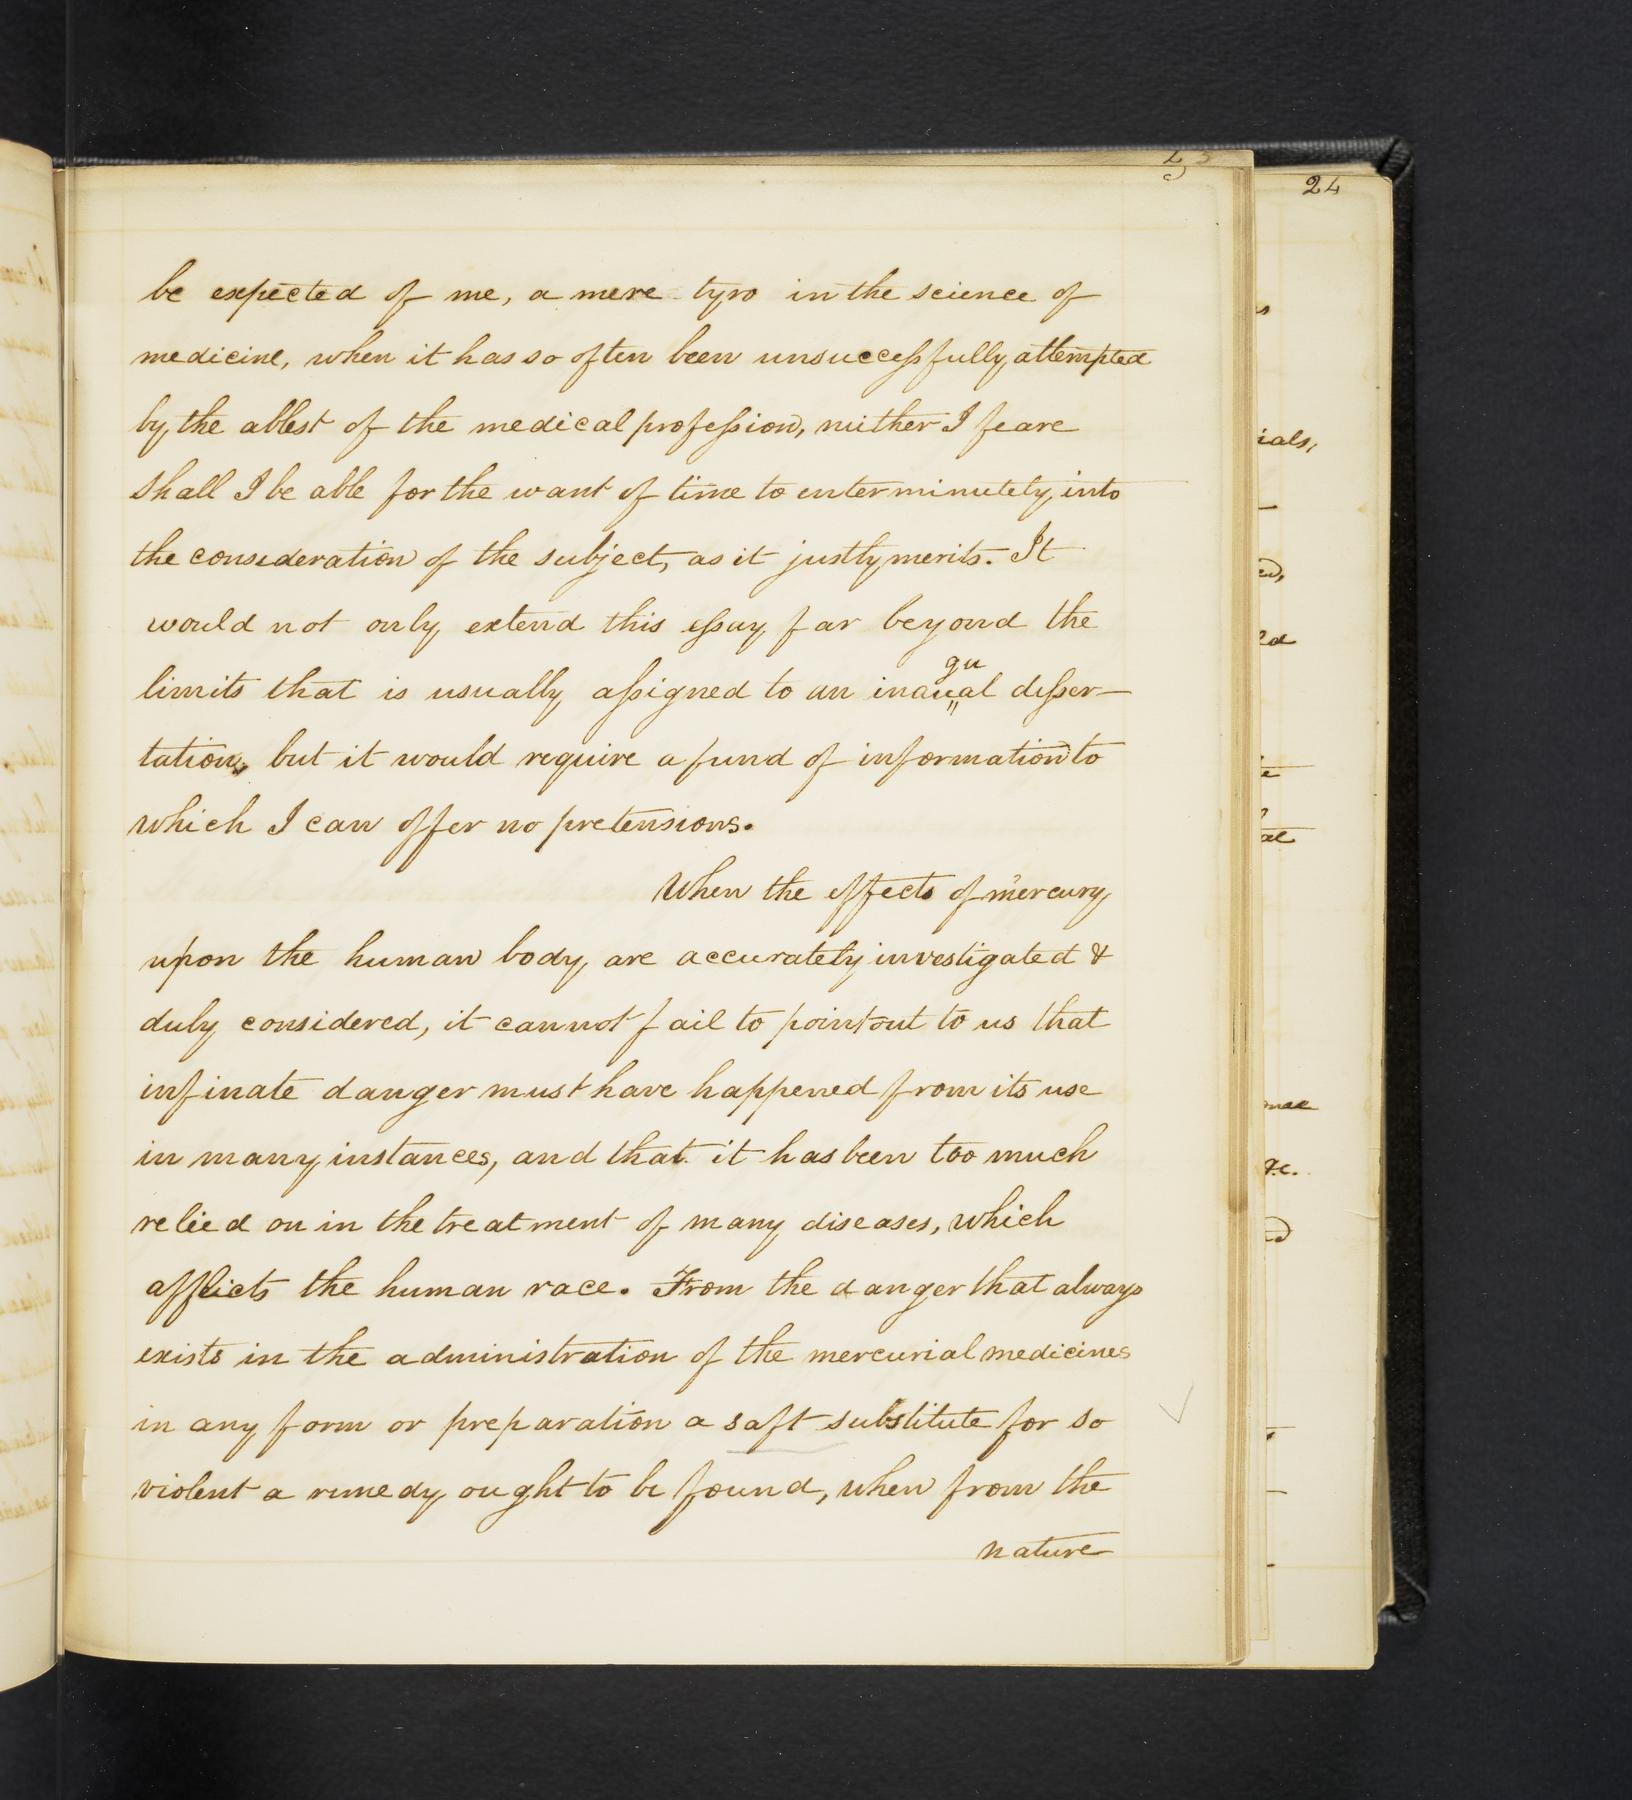 24
be expected of me, a mere tyro in the science of
medicine, when it has so often been unsuccessfully attempted
by the ablest of the medical profession, neither I feare
shall I be able for the want of time to enter minutely into
the consideration of the subject, as it justly merits. It
would not only extend this essay far beyond the
gu
limits that is usually assigned to an inaual disser—
tation, but it would require a fund of information to
which I can offer no pretensions.
When the effects of mercury
upon the human body, are accurately investigated &
duly considered, it cannot fail to point out to us that
infinate danger must have happened from its use
in many instances, and that it has been too much
relied on in the treatment of many diseases, which
afflicts the human race. From the danger that always
exists in the administration of the mercurial medicines
in any form or preparation a saft substitute for so
violent a remedy ought to be found, when from the
nature